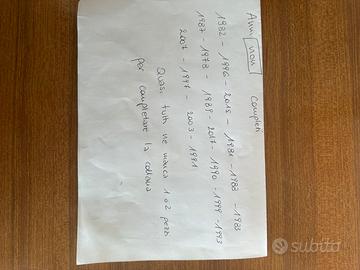 Anni non completi
1982 - 1996 - 2015 - 1981 - 1988 - 1985
1987 - 1978 - 1989 - 2017 - 1990 - 1999 - 1993
2007 - 1997 - 2003 - 1991
Quasi tutti ne manca 1 o 2 pezzi
per completare la collana
subito